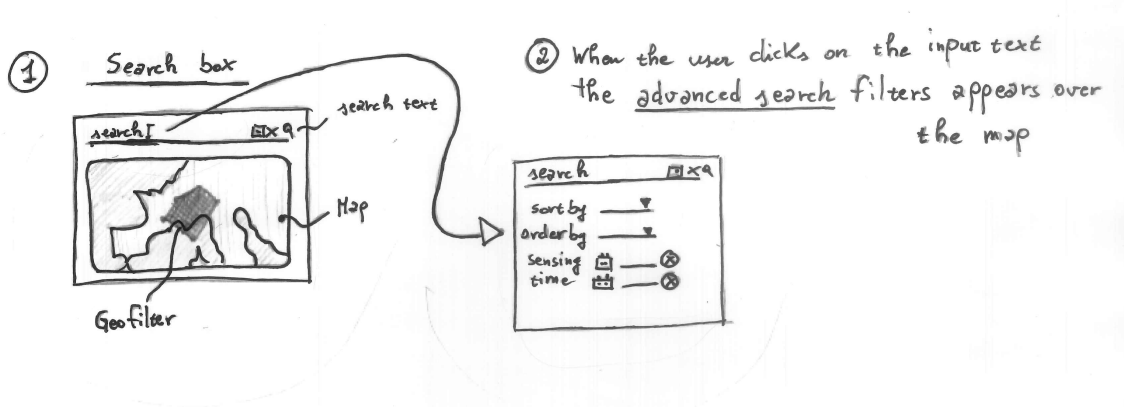 1 Search box
search
search text
Map
Geofilter
2 When the user clicks on the input text
the advanced search filters appears over
the map
search
sort by
order by
sensing
time